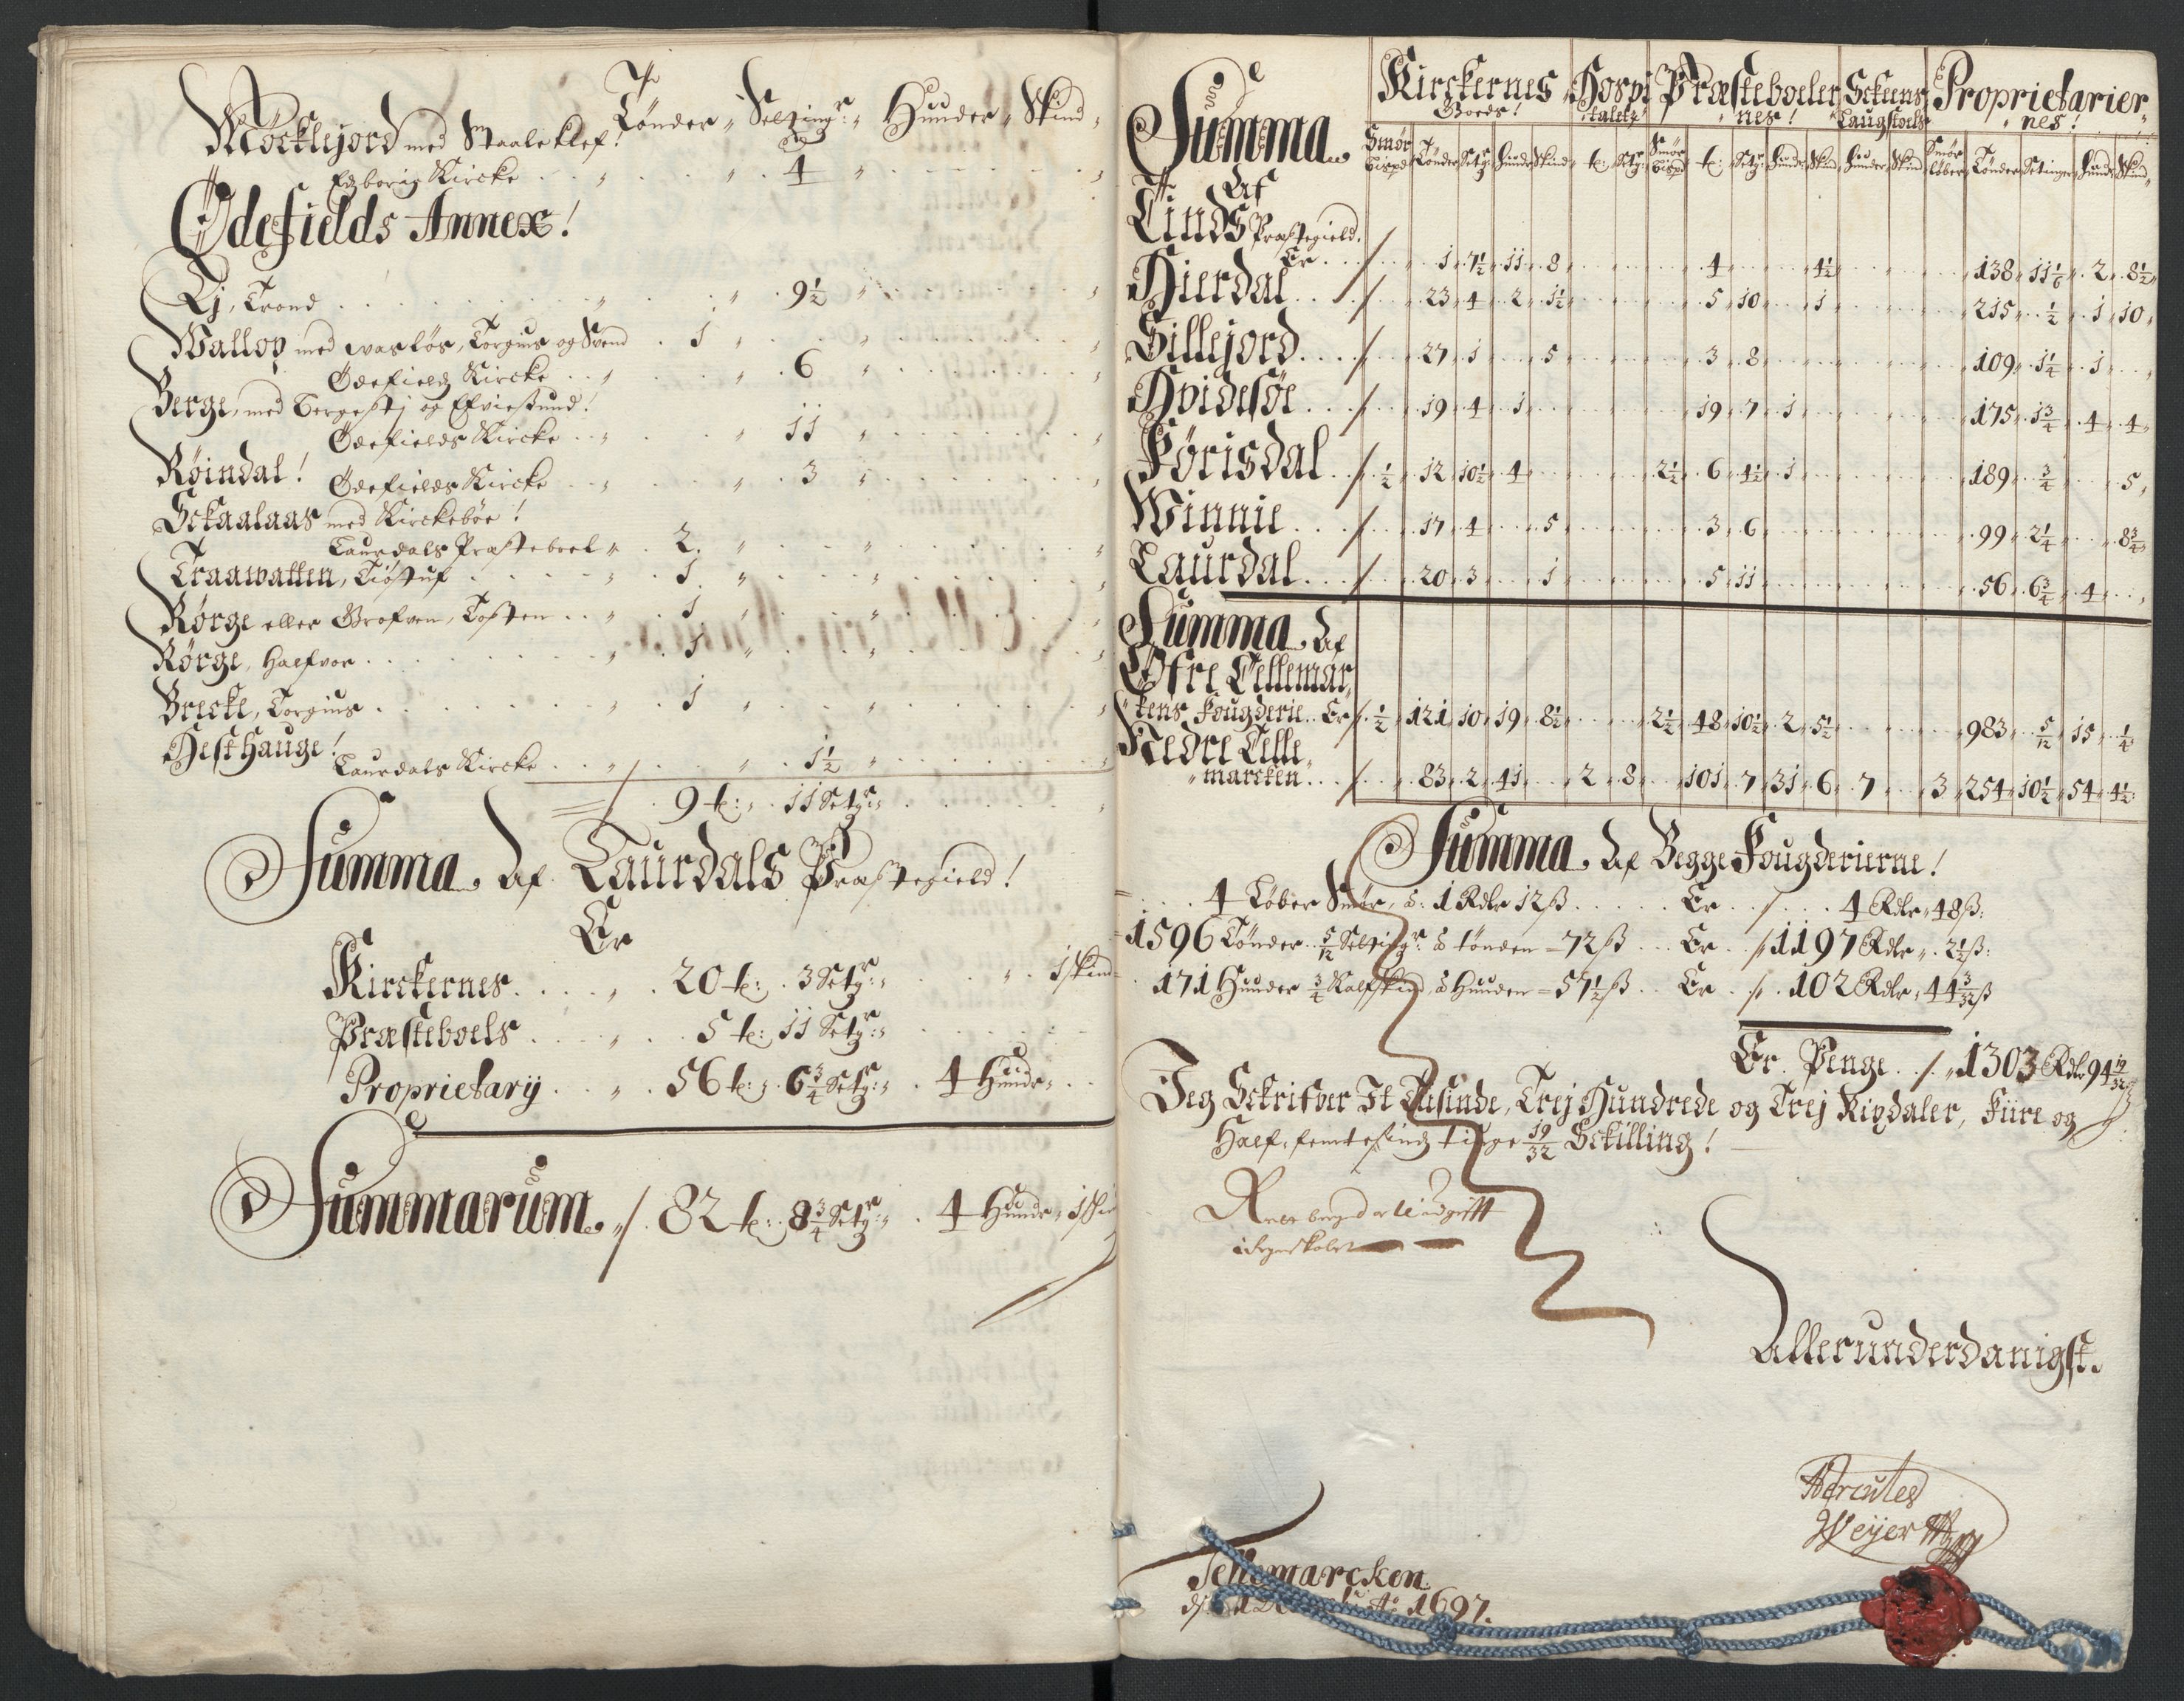 Tønder, Setting:r Huuder, Skind,
Möcklejord med Staaleklef!
Edzborig Kircke . . . 4
Ödefields Annex!
Ej, Trond . . . 9½
Wallop med waslös, Torgius og Svend . 1
Ödefields Kircke . . . 6
Berge, med Bergestj og Efviestund!
Ödefields Kircke . . . 11
Røindal!
Ödefields Kircke . . . 3
Sckaalaas med Kirckebøe!
Laurdals Præsteboel . 2
Traawatten, Tiøstuf . . . 1
Rørge eller Grofven, Tosten . . 1
Rørge, Halfvor . . . 1
Brecke, Torgius . . . 1
Hest Hauge!
Laurdals Kircke . . . 1½
/. 9 t: 11 Setg:r
Summa, Af Laurdals Præstegield!
Er
Kirckernes . . . 20 t: 3 Setg:r . . 1 skind
Præsteboels . . . 5 t: 11 Setg:r
Proprietarij . . 56 t: 6¾ Setg:r . 4 Huudr
Summarum. /. 82 t: 8¾ Setg:r . 4 Huudr 1 Ski
Kirckernes Hospi Præsteboeler Sckeens Proprietarier
Goeds! talets nes! Laugstoels nes!
Summa. Smør Bispd Tønder Setg:r Huudr Skind t: Setg:r Smør Bispd t: Setg:r Huudr Skind Huuder Skind Smør Løber Tønder Setinger Huudr Skind
Af
Tinds Præstegield.
Er . . . 1 7½ 11 8 . . 4 . . 4½ . . 138 11⅙ 2 8½
Hierdal . . / . 23 4 2 1½ . . 5 10 . 1 . . 215 ½ 1 10
Sillejord . . . / . 27 1 . 5 . . 3 8 . . 109 1¼ 1
Hvidesøe . . / . 19 4 1 . . 19 7 1 . . 175 1¾ 4 4
Førisdal . / ½ 12 10½ 4 . . 2½ 6 4½ 1 . . 189 ¾ . 5
Winnie . . . / . 17 4 . 5 . . 3 6 . . 99 2¼ . 8¾
Laurdal . . . / . 20 3 . 1 . . 5 11 . . 56 6¾ 4
Summa, Af
Øfre Tellemar
kens Fougderie . . Er / ½ 121 10 19 8½ . . 2½ 48 10½ 2 5½ . . 983 5/12 15 ¼
Nedre Telle
marcken . . . / . 83 2 41 . 2 8 . 101 7 31 6 7 . 3 254 10½ 54 4½
Summa, Af Begge Fougderierne!
4 Løber Smør, à: 1 Rdlr 12 ß . . . Er . /. . . 4 Rdlr 48 ß:
1596 Tønder 5/12 Setting:r à tønden = 72 ß . . Er . /. 1197 Rdlr . 2½ ß:
171 Huuder ¾ Kalfskind à Huuden = 57½ ß . . Er . /. . 102 Rdlr 44 3/32 ß
Er Penge . /. 1303 Rdlr 94 19/32 ß
Jeg Sckrifver Et Tusinde, Trej Hundrede og Trej Rixdaler, Fiire og
Half-femtesinds tiuge 19/32 Sckilling!
Allerunderdanigst.
Hercules
Weijer
Tellemarcken
A:o 1697.